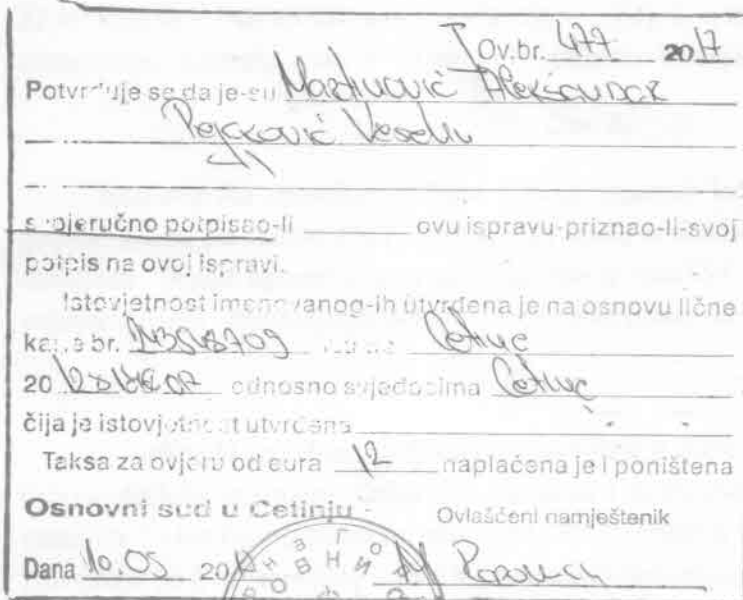 Ov.br. 477 2017
Potvrđuje se da je-su Martinović Aleksandar
Pejaković Veselin
svojeručno potpisao-li ovu ispravu-priznao-li-svoj
potpis na ovoj ispravi.
Istovjetnost imenovanog-ih utvrđena je na osnovu lične
karte br. Cetinje
20 odnosno svjedocima Cetinje
čija je istovjetnost utvrđena
Taksa za ovjeru od eura 12 naplaćena je i poništena
Osnovni sud u Cetinju Ovlašćeni namještenik
Dana 10.05 20